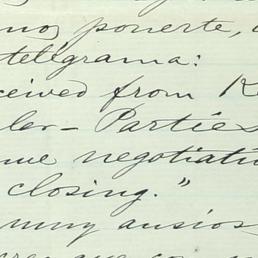 no, ponerte,
telégrama:
ceived from
ler – Parties
me negotiati
closing."
muy ansios